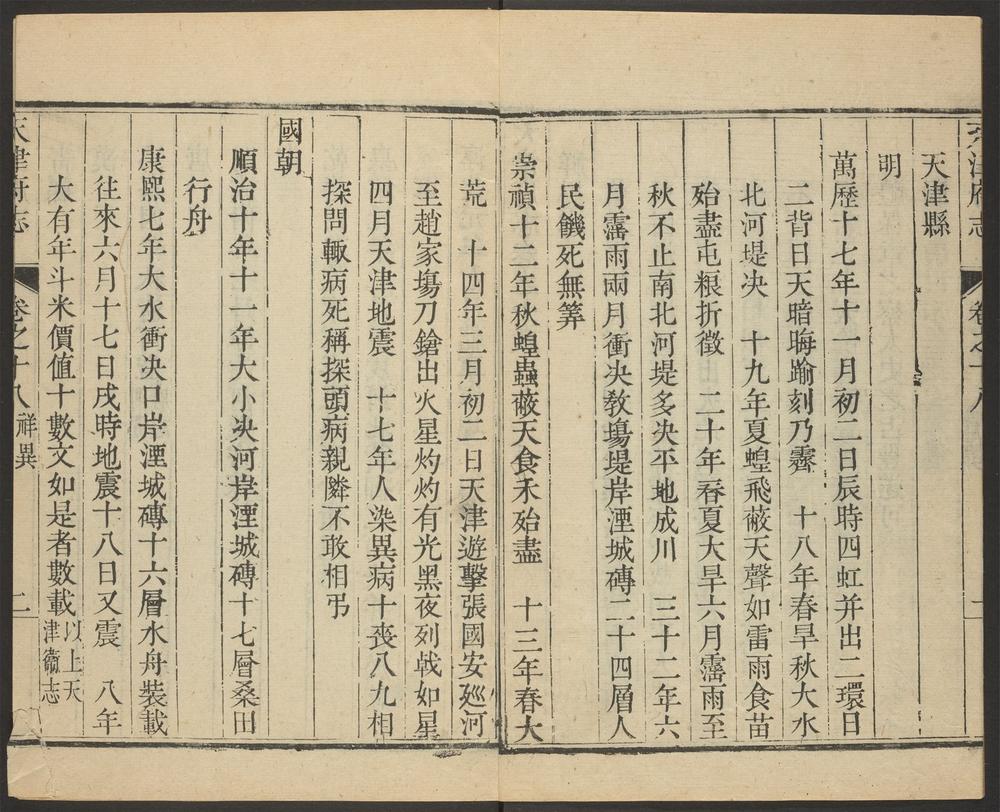 天津府志
卷之十八
二
天津縣
明
萬歷十七年十一月初二日辰時四虹并出二環日
二背日天暗晦踰刻乃霽　十八年春旱秋大水
北河堤决　十九年夏蝗飛蔽天聲如雷雨食苗
殆盡屯粮折徵　二十年春夏大旱六月霪雨至
秋不止南北河堤多决平地成川　三十二年六
月霪雨兩月衝决教塲堤岸湮城磚二十四層人
民饑死無筭
崇禎十二年秋蝗蟲蔽天食禾殆盡　十三年春大
荒　十四年三月初二日天津遊擊張國安廵河
至趙家塲刀鎗出火星灼灼有光黑夜列戟如星
四月天津地震　十七年人染異病十喪八九相
探問輙病死稱探頭病親隣不敢相弔
國朝
順治十年十一年大小决河岸湮城磚十七層桑田
行舟
康熙七年大水衝决口岸湮城磚十六層水舟裝載
往來六月十七日戌時地震十八日又震　八年
大有年斗米價值十數文如是者數載以上天
津衞志
天津府志
卷之十八
祥異
二